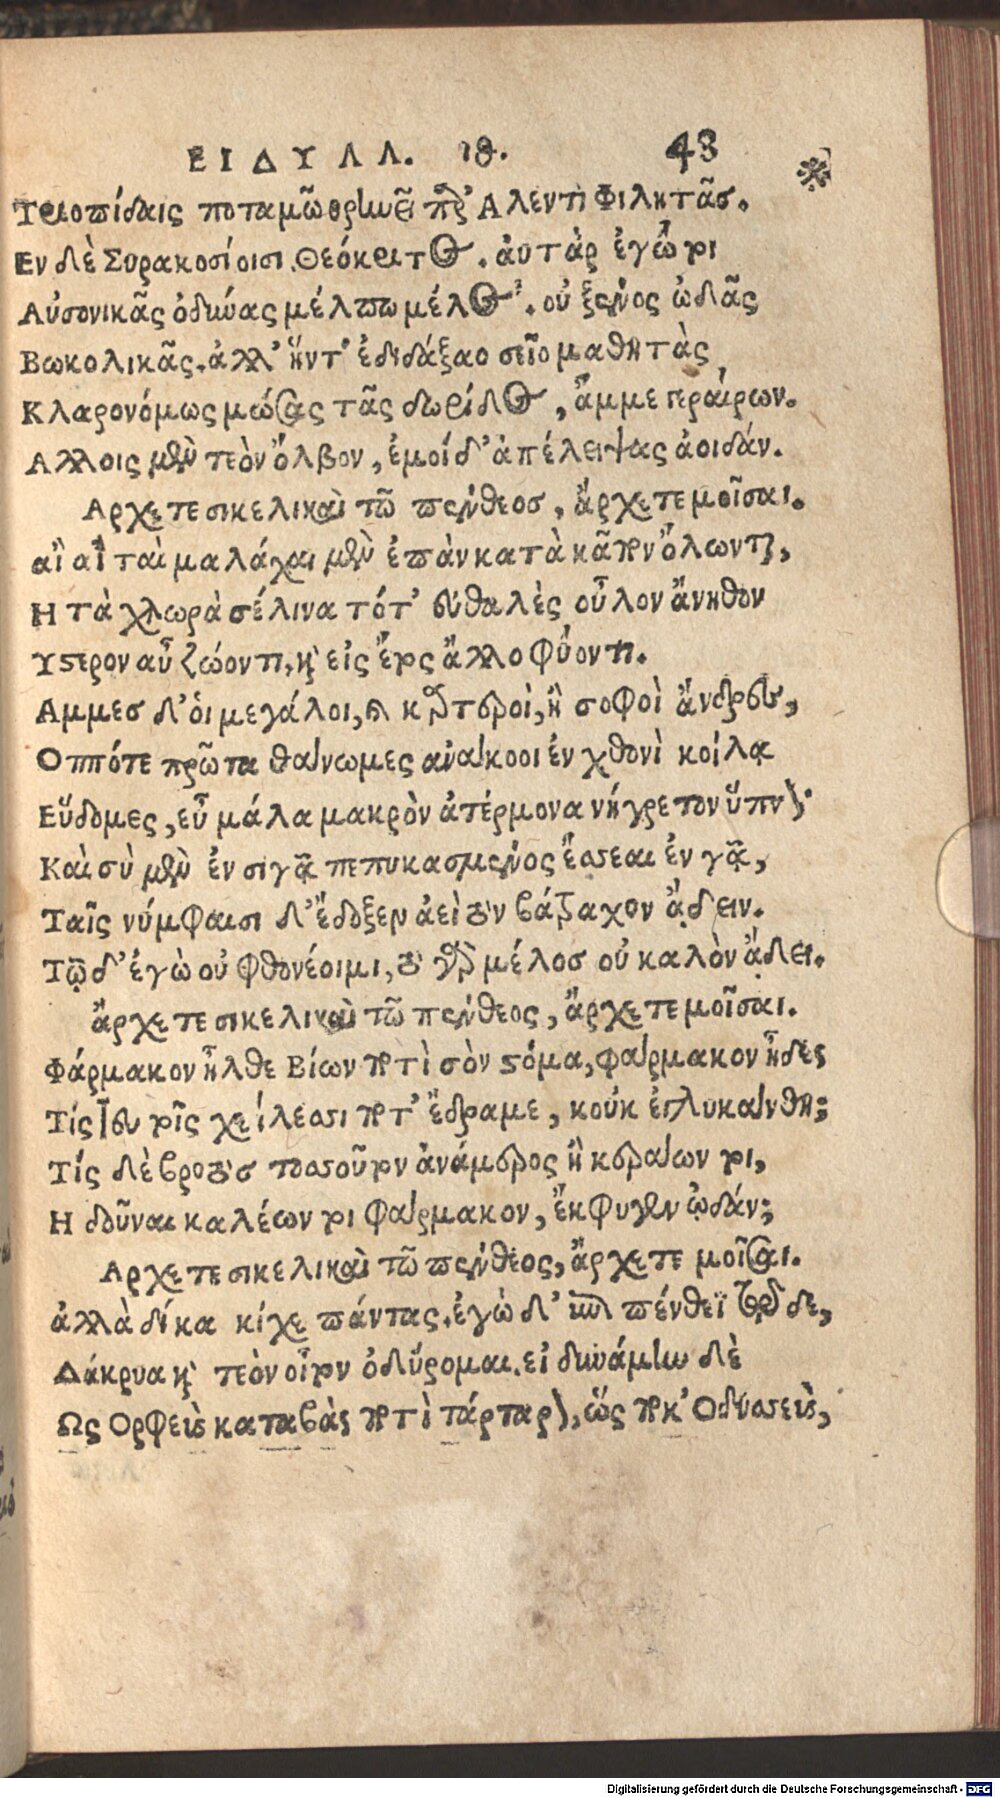 ΕΙΔΥΛΛ. ιθ. 43
Τριοπίδαις ποταμῶ θρηνεῖ παρ' Αλεντι Φιλητᾶς.
Εν δὲ Συρακοσίοισι Θεόκριτος. ἀυτὰρ ἐγώ τοι
Αὐσονικᾶς ὀδύνας μέλπω μέλος. οὐ ξένος ὠδᾶς
Βωκολικᾶς. ἀλλ' ἥντ' ἐδιδάξαο σεῖο μαθητὰς
Κλαρονόμως μώσας τᾶς δωρίδος, ἄμμε γεραίρων.
Αλλοις μὲν τεὸν ὄλβον, ἐμοί δ' ἀπέλειψας ἀοιδάν.
Αρχετε σικελικαὶ τῶ πένθεος, ἄρχετε μοῖσαι.
αἲ αἲ ταὶ μαλάχαι μὲν ἐπὰν κατὰ κᾶπον ὄλωνται,
Η τὰ χλωρὰ σέλινα τότ' εὐθαλὲς οὖλον ἄνηθον
Υστερον αὖ ζώοντι, καὶ εἰς ἔτος ἄλλο φύοντι.
Αμμες δ' ὁι μεγάλοι, καὶ καρτεροὶ, ἢ σοφοὶ ἄνδρες,
Οππότε πρῶτα θάνωμες ανάκοοι ἐν χθονὶ κοίλᾳ
Εὕδομες, εὖ μάλα μακρὸν ἀτέρμονα νήγρετον ὕπνον·
Καὶ σὺ μὲν ἐν σιγᾷ πεπυκασμένος ἔσσεαι ἐν γᾷ,
Ταῖς νύμφαισι δ' ἔδοξεν ἀεὶ τὸν βάτραχον ᾄδειν.
Τῷ δ' ἐγὼ οὐ φθονέοιμι, τὸ γὰρ μέλοσ οὐ καλὸν ᾄδει.
ἄρχετε σικελικαὶ τῶ πένθεος, ἄρχετε μοῖσαι.
Φάρμακον ἦλθε Βίων ποτὶ σὸν στόμα, φάρμακον ἦδες
Τίς τευ τοῖς χείλεσσι ποτ' ἔδραμε, κοὐκ ἐγλυκάνθη;
Τίς δὲ βροτὸσ τοσσοῦτον ἀνάμερος ἢ κεράσων τοι,
Η δοῦναι καλέων τοι φάρμακον, ἔκφυγεν ᾠδάν;
Αρχετε σικελικαὶ τῶ πένθεος, ἄρχετε μοῖσαι.
ἀλλὰ δίκα κίχε πάντας. ἐγὼ δ' ἐπὶ πένθεϊ τῷδε,
Δάκρυα καὶ τεὸν οἶτον ὀδύρομαι. εἰ δυνάμην δὲ
Ως Ορφεὺς καταβὰς ποτὶ τάρταρον, ὥς ποκ' Οδύσσεὺς,
Digitalisierung gefördert durch die Deutsche Forschungsgemeinschaft - DFG